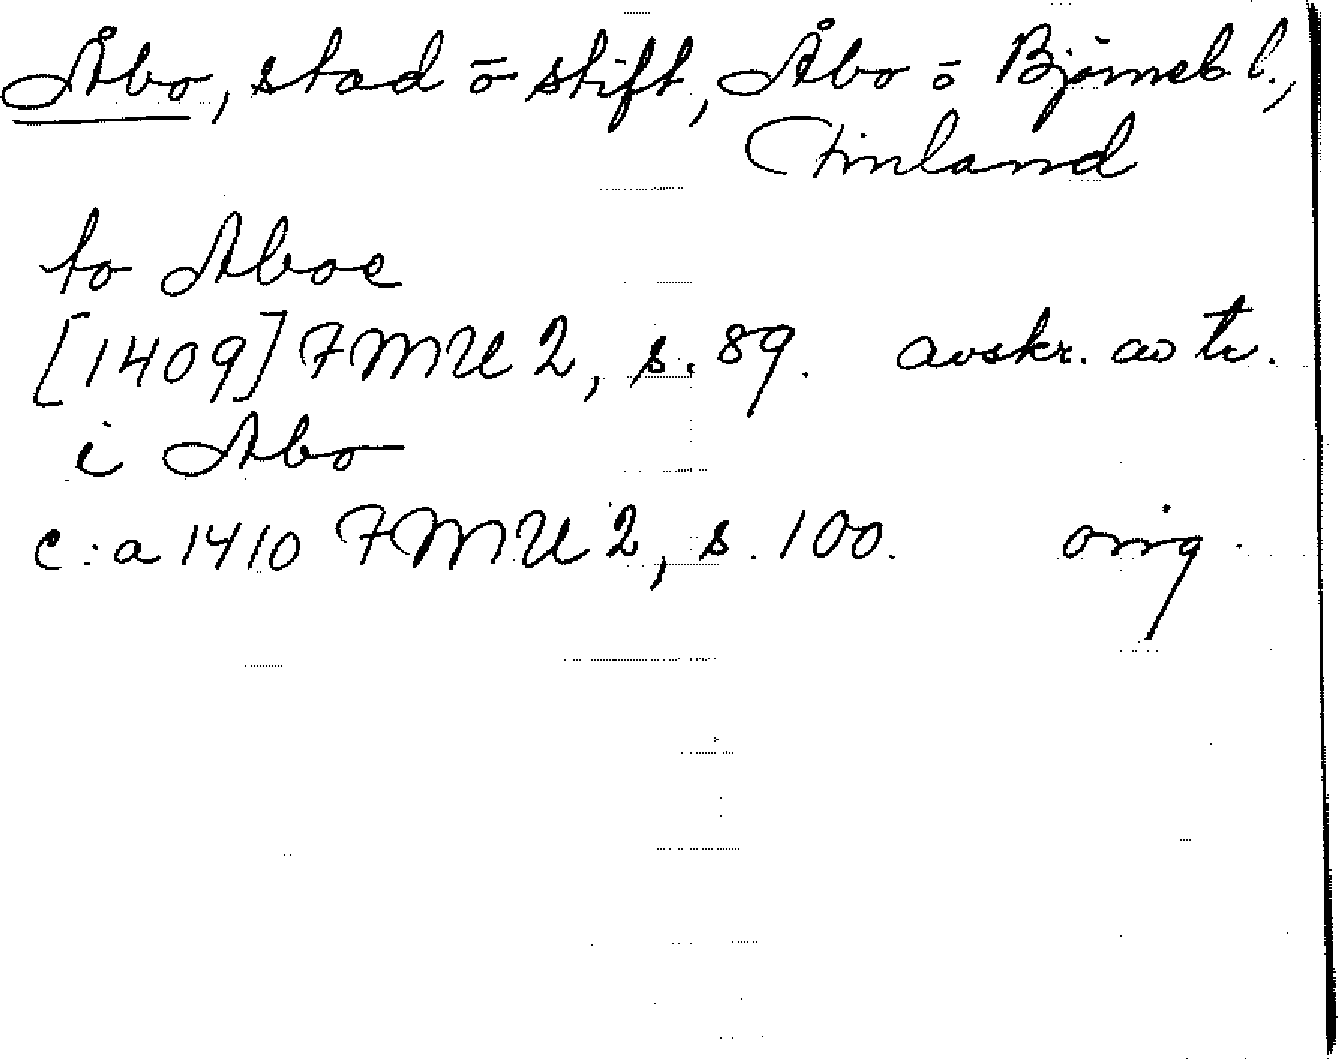 Åbo, stad o stift, Åbo o Björneb l.,
Finland
to Aboe
[1409] FMU 2, s. 89. avskr. av tr.
i Abo
c:a 1410 FMU 2, s. 100. orig.